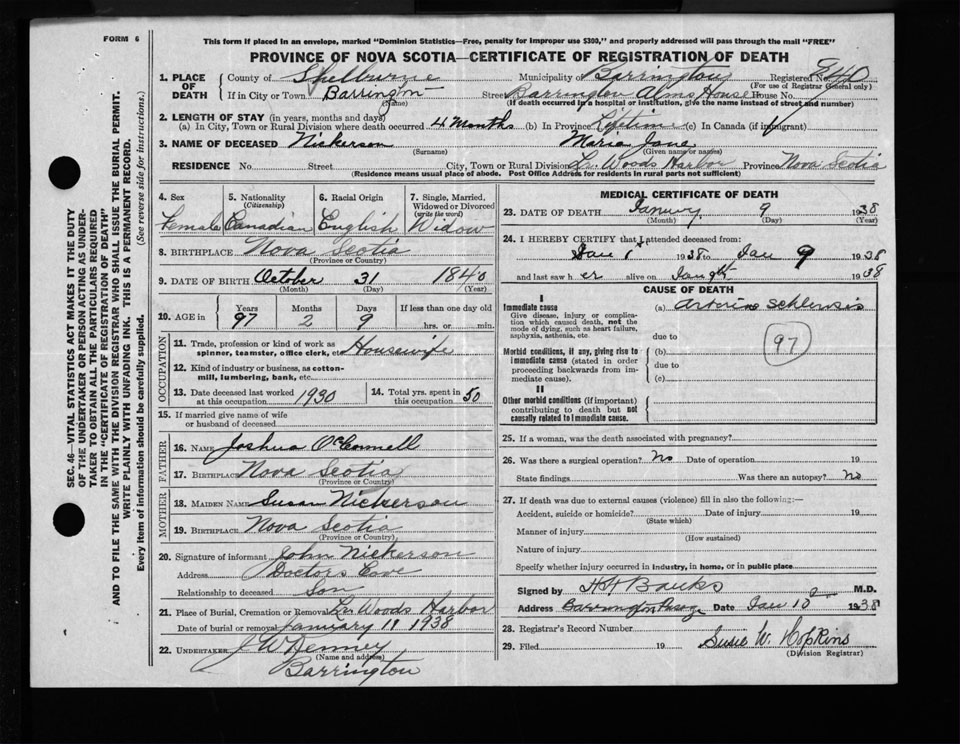 FORM 6
This form if placed in an envelope, marked "Dominion Statistics—Free, penalty for improper use $300," and properly addressed will pass through the mail "FREE"
PROVINCE OF NOVA SCOTIA—CERTIFICATE OF REGISTRATION OF DEATH
1. PLACE OF DEATH
County of Shelburne Municipality of Barrington Registered No.
(For use of Registrar General only)
If in City or Town Barrington Street Barrington Alms House House No.
(Name) (If death occurred in a hospital or institution, give the name instead of street and number)
2. LENGTH OF STAY (in years, months and days)
(a) In City, Town or Rural Division where death occurred 4 Months (b) In Province Lifetime (c) In Canada (if immigrant)
3. NAME OF DECEASED Nickerson Maria Jane
(Surname) (Given name or names)
RESIDENCE No. Street City, Town or Rural Division Lr. Woods Harbor Province Nova Scotia
(Residence means usual place of abode. Post Office Address for residents in rural parts not sufficient)
4. Sex 5. Nationality (Citizenship) 6. Racial Origin 7. Single, Married, Widowed or Divorced (write the word)
Female Canadian English Widow
8. BIRTHPLACE Nova Scotia
(Province or Country)
9. DATE OF BIRTH October 31 1840
(Month) (Day) (Year)
10. AGE in Years Months Days If less than one day old
97 2 9 hrs. or min.
OCCUPATION
11. Trade, profession or kind of work as spinner, teamster, office clerk, etc. Housewife
12. Kind of industry or business, as cotton-mill, lumbering, bank, etc.
13. Date deceased last worked at this occupation 1930 14. Total yrs. spent in this occupation 50
15. If married give name of wife or husband of deceased
FATHER
16. NAME Joshua O'Connell
17. BIRTHPLACE Nova Scotia
(Province or Country)
MOTHER
18. MAIDEN NAME Susan Nickerson
19. BIRTHPLACE Nova Scotia
(Province or Country)
20. Signature of informant John Nickerson
Address Doctors Cove
Relationship to deceased Son
21. Place of Burial, Cremation or Removal Lr. Woods Harbor
Date of burial or removal January 11 1938
22. UNDERTAKER J W Kenney
(Name and address)
Barrington
MEDICAL CERTIFICATE OF DEATH
23. DATE OF DEATH January 9 1938
(Month) (Day) (Year)
24. I HEREBY CERTIFY that I attended deceased from:
Jan 1 1938 to Jan 9 1938
and last saw her alive on Jan 9th 1938
CAUSE OF DEATH
I
Immediate cause
Give disease, injury or complication which caused death, not the mode of dying, such as heart failure, asphyxia, asthenia, etc.
(a)
due to
Morbid conditions, if any, giving rise to immediate cause (stated in order proceeding backwards from immediate cause).
(b)
due to
(c)
97
II
Other morbid conditions (if important) contributing to death but not causally related to immediate cause.
25. If a woman, was the death associated with pregnancy?
26. Was there a surgical operation? No Date of operation 19
State findings Was there an autopsy? No
27. If death was due to external causes (violence) fill in also the following:—
Accident, suicide or homicide? Date of injury 19
(State which)
Manner of injury
(How sustained)
Nature of injury
Specify whether injury occurred in industry, in home, or in public place
Signed by H H Banks M.D.
Address Barrington Passage Date Jan 10 1938
28. Registrar's Record Number
29. Filed 19 Susie W. Hopkins
(Division Registrar)
SEC. 46—VITAL STATISTICS ACT MAKES IT THE DUTY
OF THE UNDERTAKER OR PERSON ACTING AS UNDER-
TAKER TO OBTAIN ALL THE PARTICULARS REQUIRED
IN THE "CERTIFICATE OF REGISTRATION OF DEATH"
AND TO FILE THE SAME WITH THE DIVISION REGISTRAR WHO SHALL ISSUE THE BURIAL PERMIT.
WRITE PLAINLY WITH UNFADING INK. THIS IS A PERMANENT RECORD.
Every item of information should be carefully supplied. (See reverse side for instructions.)